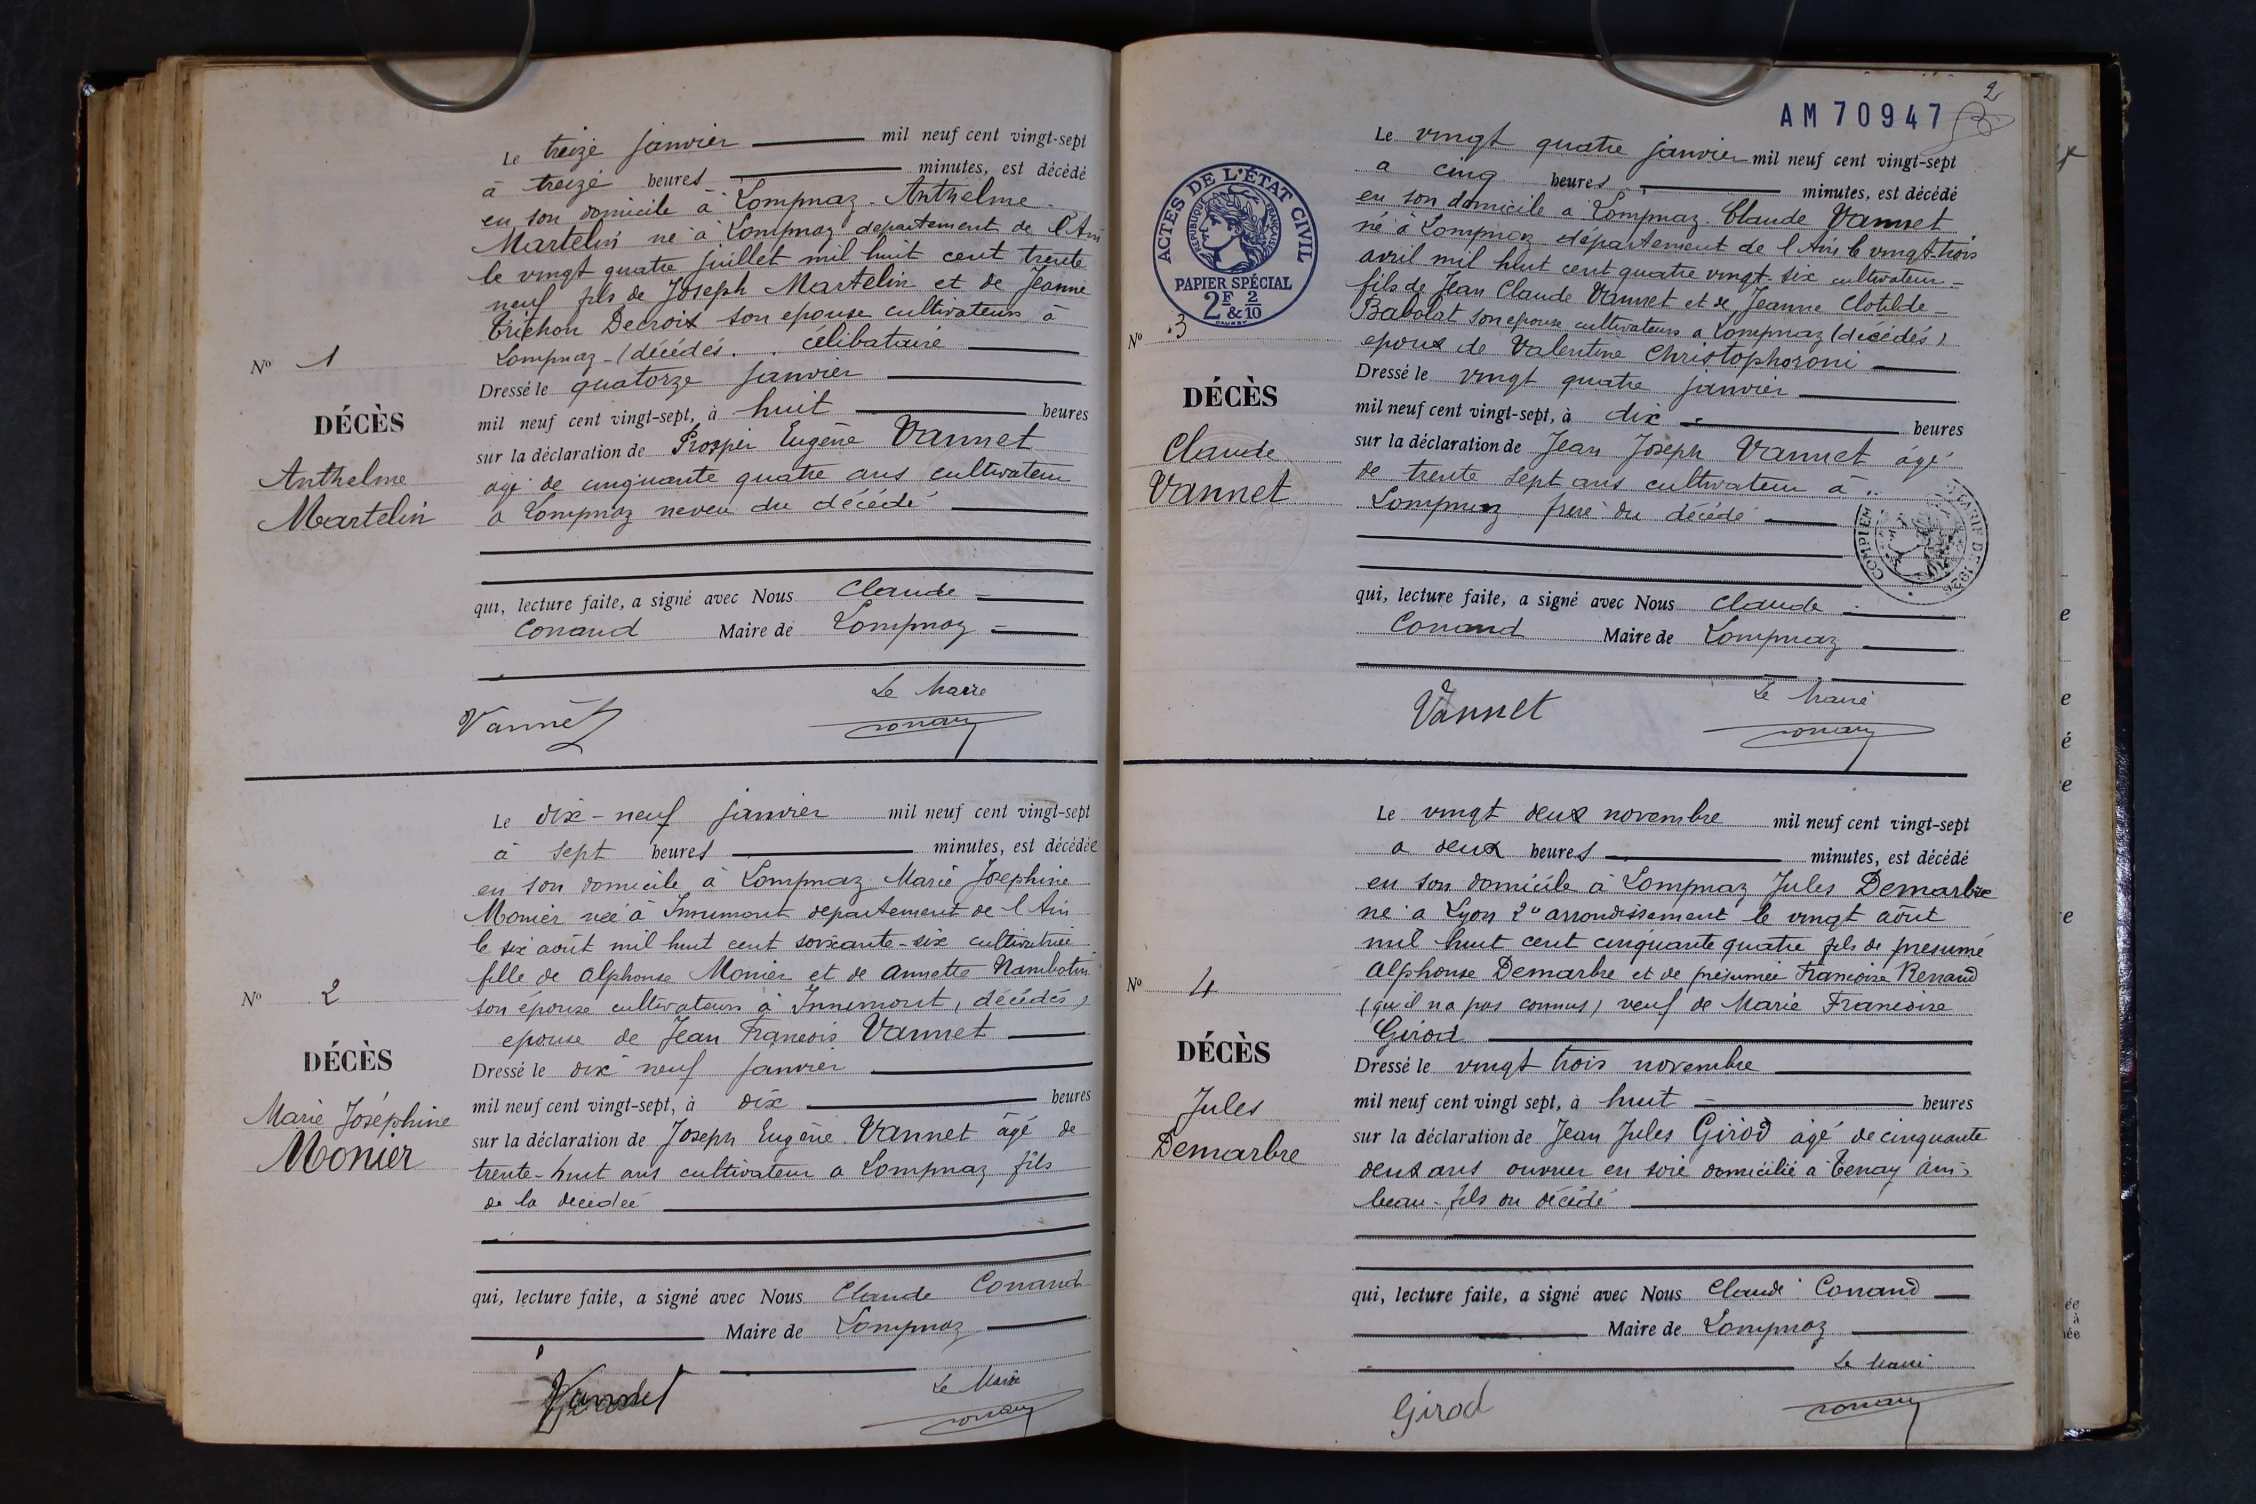 Le treize janvier mil neuf cent vingt-sept
à treize heures minutes, est décédé
en son domicile à Lompnaz. Anthelme
Martelin né à Lompnaz departement de l'Ain
le vingt quatre juillet mil huit cent trente
neuf fils de Joseph Martelin et de Jeanne
Trichon Decroix son epouse cultivateurs à
Lompnaz - (décédés. célibataire
Nº 1
Dressé le quatorze janvier
DÉCÈS
mil neuf cent vingt-sept, à huit heures
sur la déclaration de Prosper Eugène Vannet
Anthelme
agé de cinquante quatre ans cultivateur
Martelin
a Lompnaz neveu du décédé
qui, lecture faite, a signé avec Nous Claude
Conand Maire de Lompnaz
Le Maire
Vannet
Le dix-neuf janvier mil neuf cent vingt-sept
à sept heures minutes, est décédée
en son domicile à Lompnaz Marie Josephine
Monier née à Innimont departement de l Ain
le six août mil huit cent soixante-six cultivatrice
fille de Alphonse Monier et de Annette Nambotin
Nº 2
son épouse cultivateurs à Innimont, (décédés)
epouse de Jean François Vannet
DÉCÈS
Dressé le dix neuf janvier
Marie Joséphine
mil neuf cent vingt-sept, à dix heures
Monier
sur la déclaration de Joseph Eugène Vannet âgé de
trente-huit ans cultivateur a Lompnaz fils
de la decedée
qui, lecture faite, a signé avec Nous Claude Conand
Maire de Lompnaz
Le Maire
Vannet
2
AM 70947
ACTES DE L'ÉTAT CIVIL
RÉPUBLIQUE FRANÇAISE
PAPIER SPÉCIAL
2F & 2/10
Le vingt quatre janvier mil neuf cent vingt-sept
a cinq heures minutes, est décédé
en son domicile a Lompnaz. Claude Vannet
né à Lompnaz département de l Ain le vingt-trois
avril mil huit cent quatre vingt-six cultivateur
fils de Jean Claude Vannet et de Jeanne Clotilde
Babolat son epouse cultivateurs a Lompnaz (décédés)
Nº 3
epoux de Valentine Christophoroni
Dressé le vingt quatre janvier
DÉCÈS
mil neuf cent vingt-sept, à dix heures
Claude
sur la déclaration de Jean Joseph Vannet agé
Vannet
de trente sept ans cultivateur à
Lompnaz frere du décédé
qui, lecture faite, a signé avec Nous Claude
Conand Maire de Lompnaz
Le Maire
Vannet
Le vingt deux novembre mil neuf cent vingt-sept
a deux heures minutes, est décédé
en son domicile à Lompnaz Jules Demarbre
né a Lyon 2e arrondissement le vingt août
mil huit cent cinquante quatre fils de presumé
Alphonse Demarbre et de présumée Francoise Renaud
Nº 4
(qu'il n'a pas connus) veuf de Marie Francoise
Girod
DÉCÈS
Dressé le vingt trois novembre
Jules
mil neuf cent vingt sept, à huit heures
Demarbre
sur la déclaration de Jean Jules Girod agé de cinquante
deux ans ouvrier en soie domicilié à Tenay Ain
beau-fils du décédé
qui, lecture faite, a signé avec Nous Claude Conand
Maire de Lompnaz
Le Maire
Girod